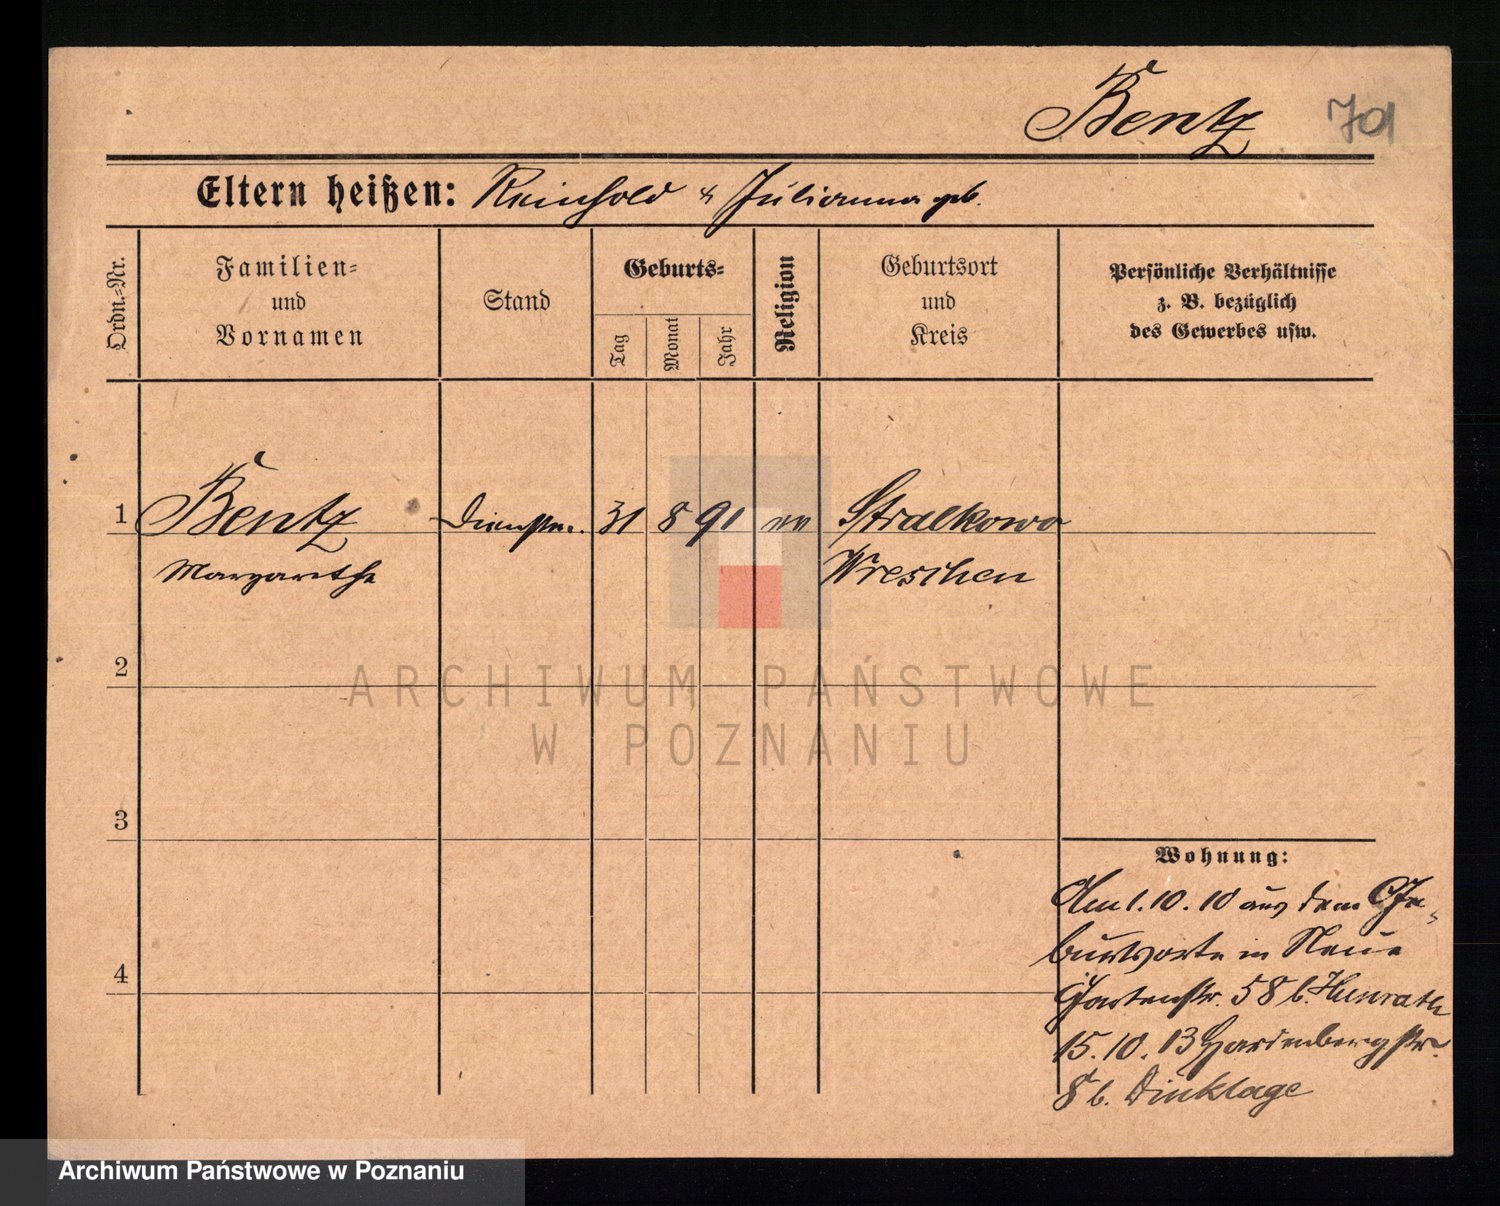 Bentz 701
Eltern heißen: Reinhold & Julianna geb.
Ordn.-Nr.
Familien-
und
Vornamen
Stand
Geburts-
Tag
Monat
Jahr
Religion
Geburtsort
und
Kreis
Persönliche Verhältnisse
z. B. bezüglich
des Gewerbes usw.
1 Bentz Dienstm. 31 8 91 ev Stralkowo
Margarethe Wreschen
2
3
4
Wohnung:
Am 1.10.10 aus dem Ge-
burtsorte in Neue
Gartenstr. 58 b.
15.10.13 Hardenbergstr.
8 b. Dinklage
ARCHIWUM PAŃSTWOWE
W POZNANIU
Archiwum Państwowe w Poznaniu